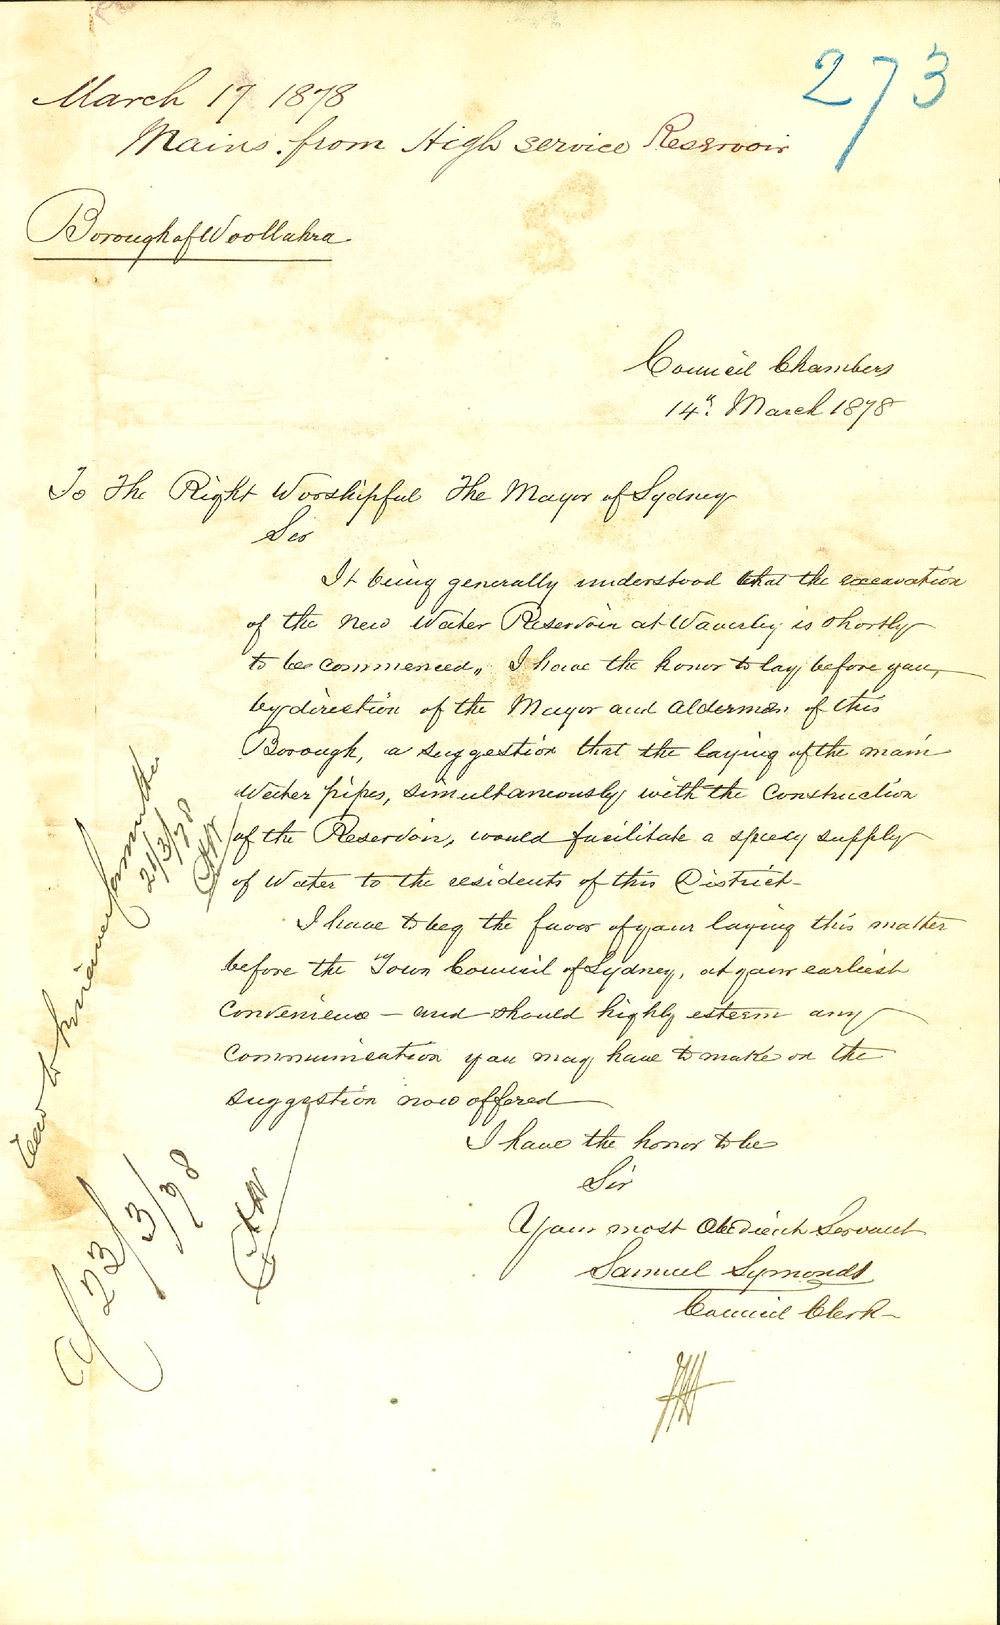 273
March 17 1878
Mains from High service Reservoir
Borough of Woollahra
Council Chambers
14th March 1878
To The Right Worshipful The Mayor of Sydney
Sir
It being generally understood that the excavation
of the new Water Reservoir at Waverley is shortly
to be commenced, I have the honor to lay before you,
by direction of the Mayor and Aldermen of this
Borough, a suggestion that the laying of the main
Water pipes, simultaneously with the Construction
of the Reservoir, would facilitate a speedy supply
of Water to the residents of this District—
I have to beg the favor of your laying this matter
before the Town Council of Sydney, at your earliest
Convenience — and should highly esteem any
Communication you may have to make on the
suggestion now offered
I have the honor to be
Sir
Your most Obedient Servant
Samuel Symonds
Council Clerk
Committee
21/3/78
23/3/78